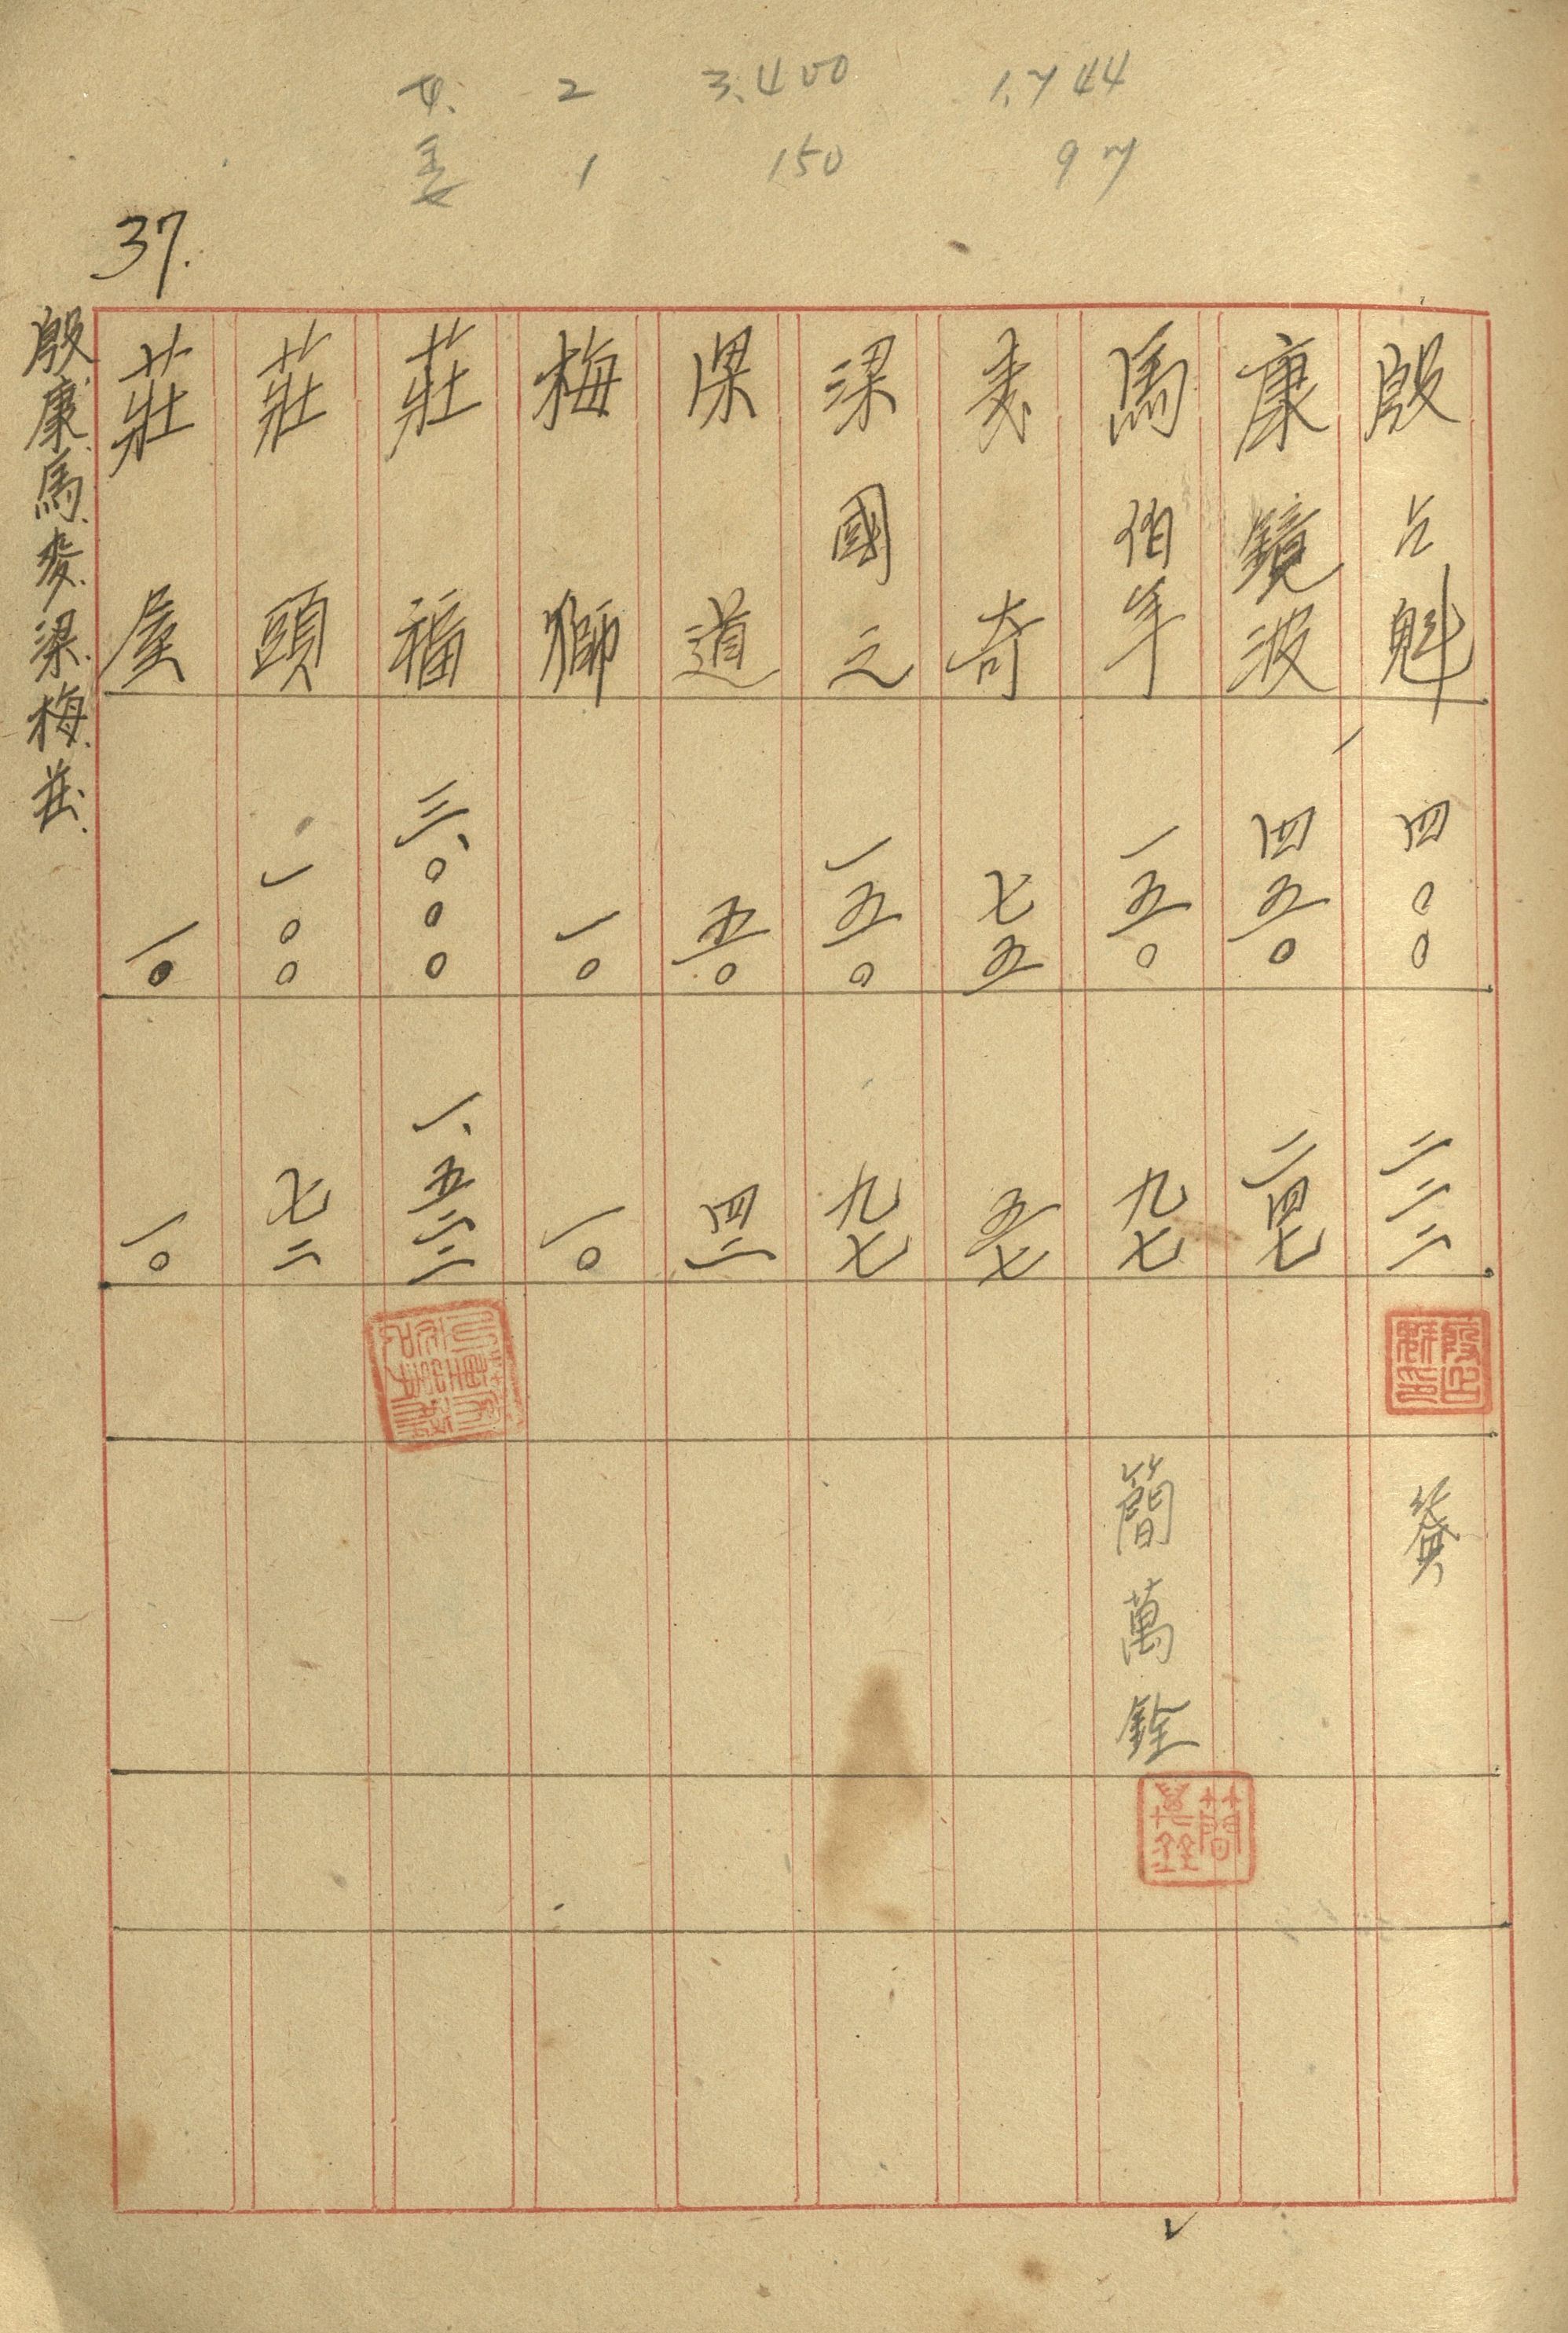 女. 2 3.400 1,744
姜 1 150 97
37.
殷占魁 四〇〇 二二二 簽
康鏡波 四五〇 二四七
馬伯年 一五〇 九七 簡萬銓
麦奇 七五 五七
梁國之 一五〇 九七
梁道 五〇 四二
梅獅 一〇 一〇
莊福 三、〇〇〇 一、五二二
莊頭 一〇〇 七二
莊屋 一〇 一〇
殷.康.馬.麥.梁.梅.莊.
殷占魁印
簡萬銓